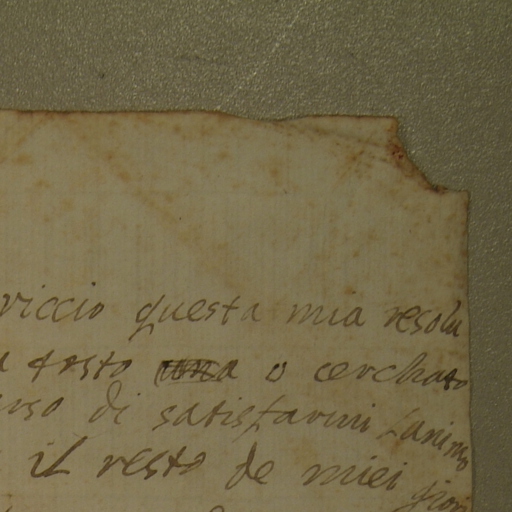 riccio questa mia resolu
a tosto o cerchato
erso di satisfarmi l'animo
il resto de miei giorni